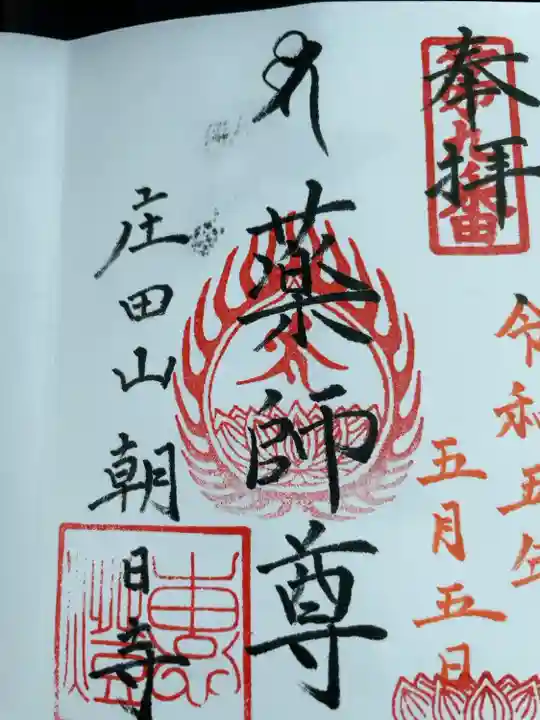 奉拝
令和五年
五月五日
薬師尊
庄田山朝日寺